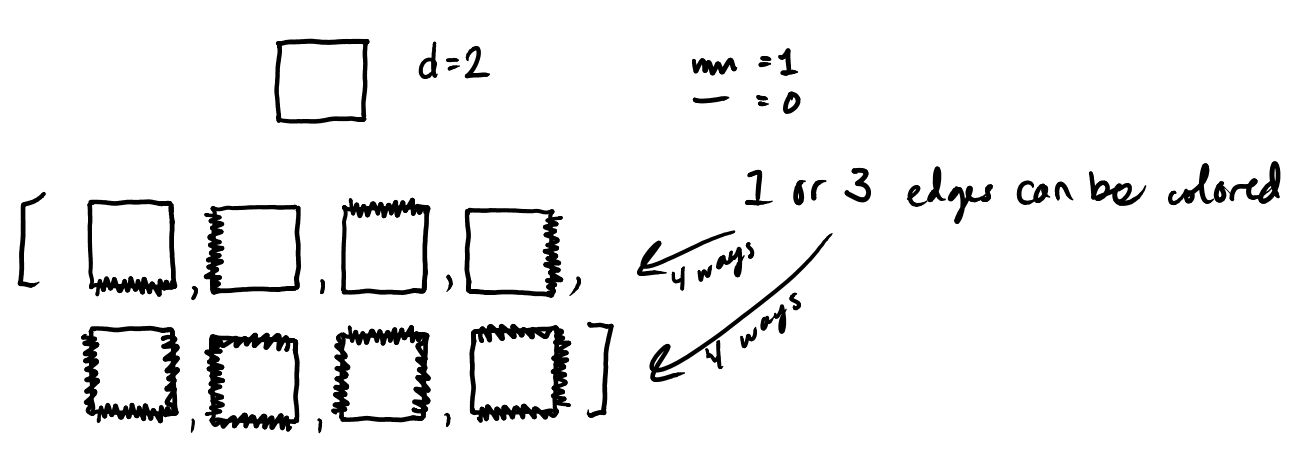 d=2
= 1
= 0
1 or 3 edges can be colored
4 ways
4 ways